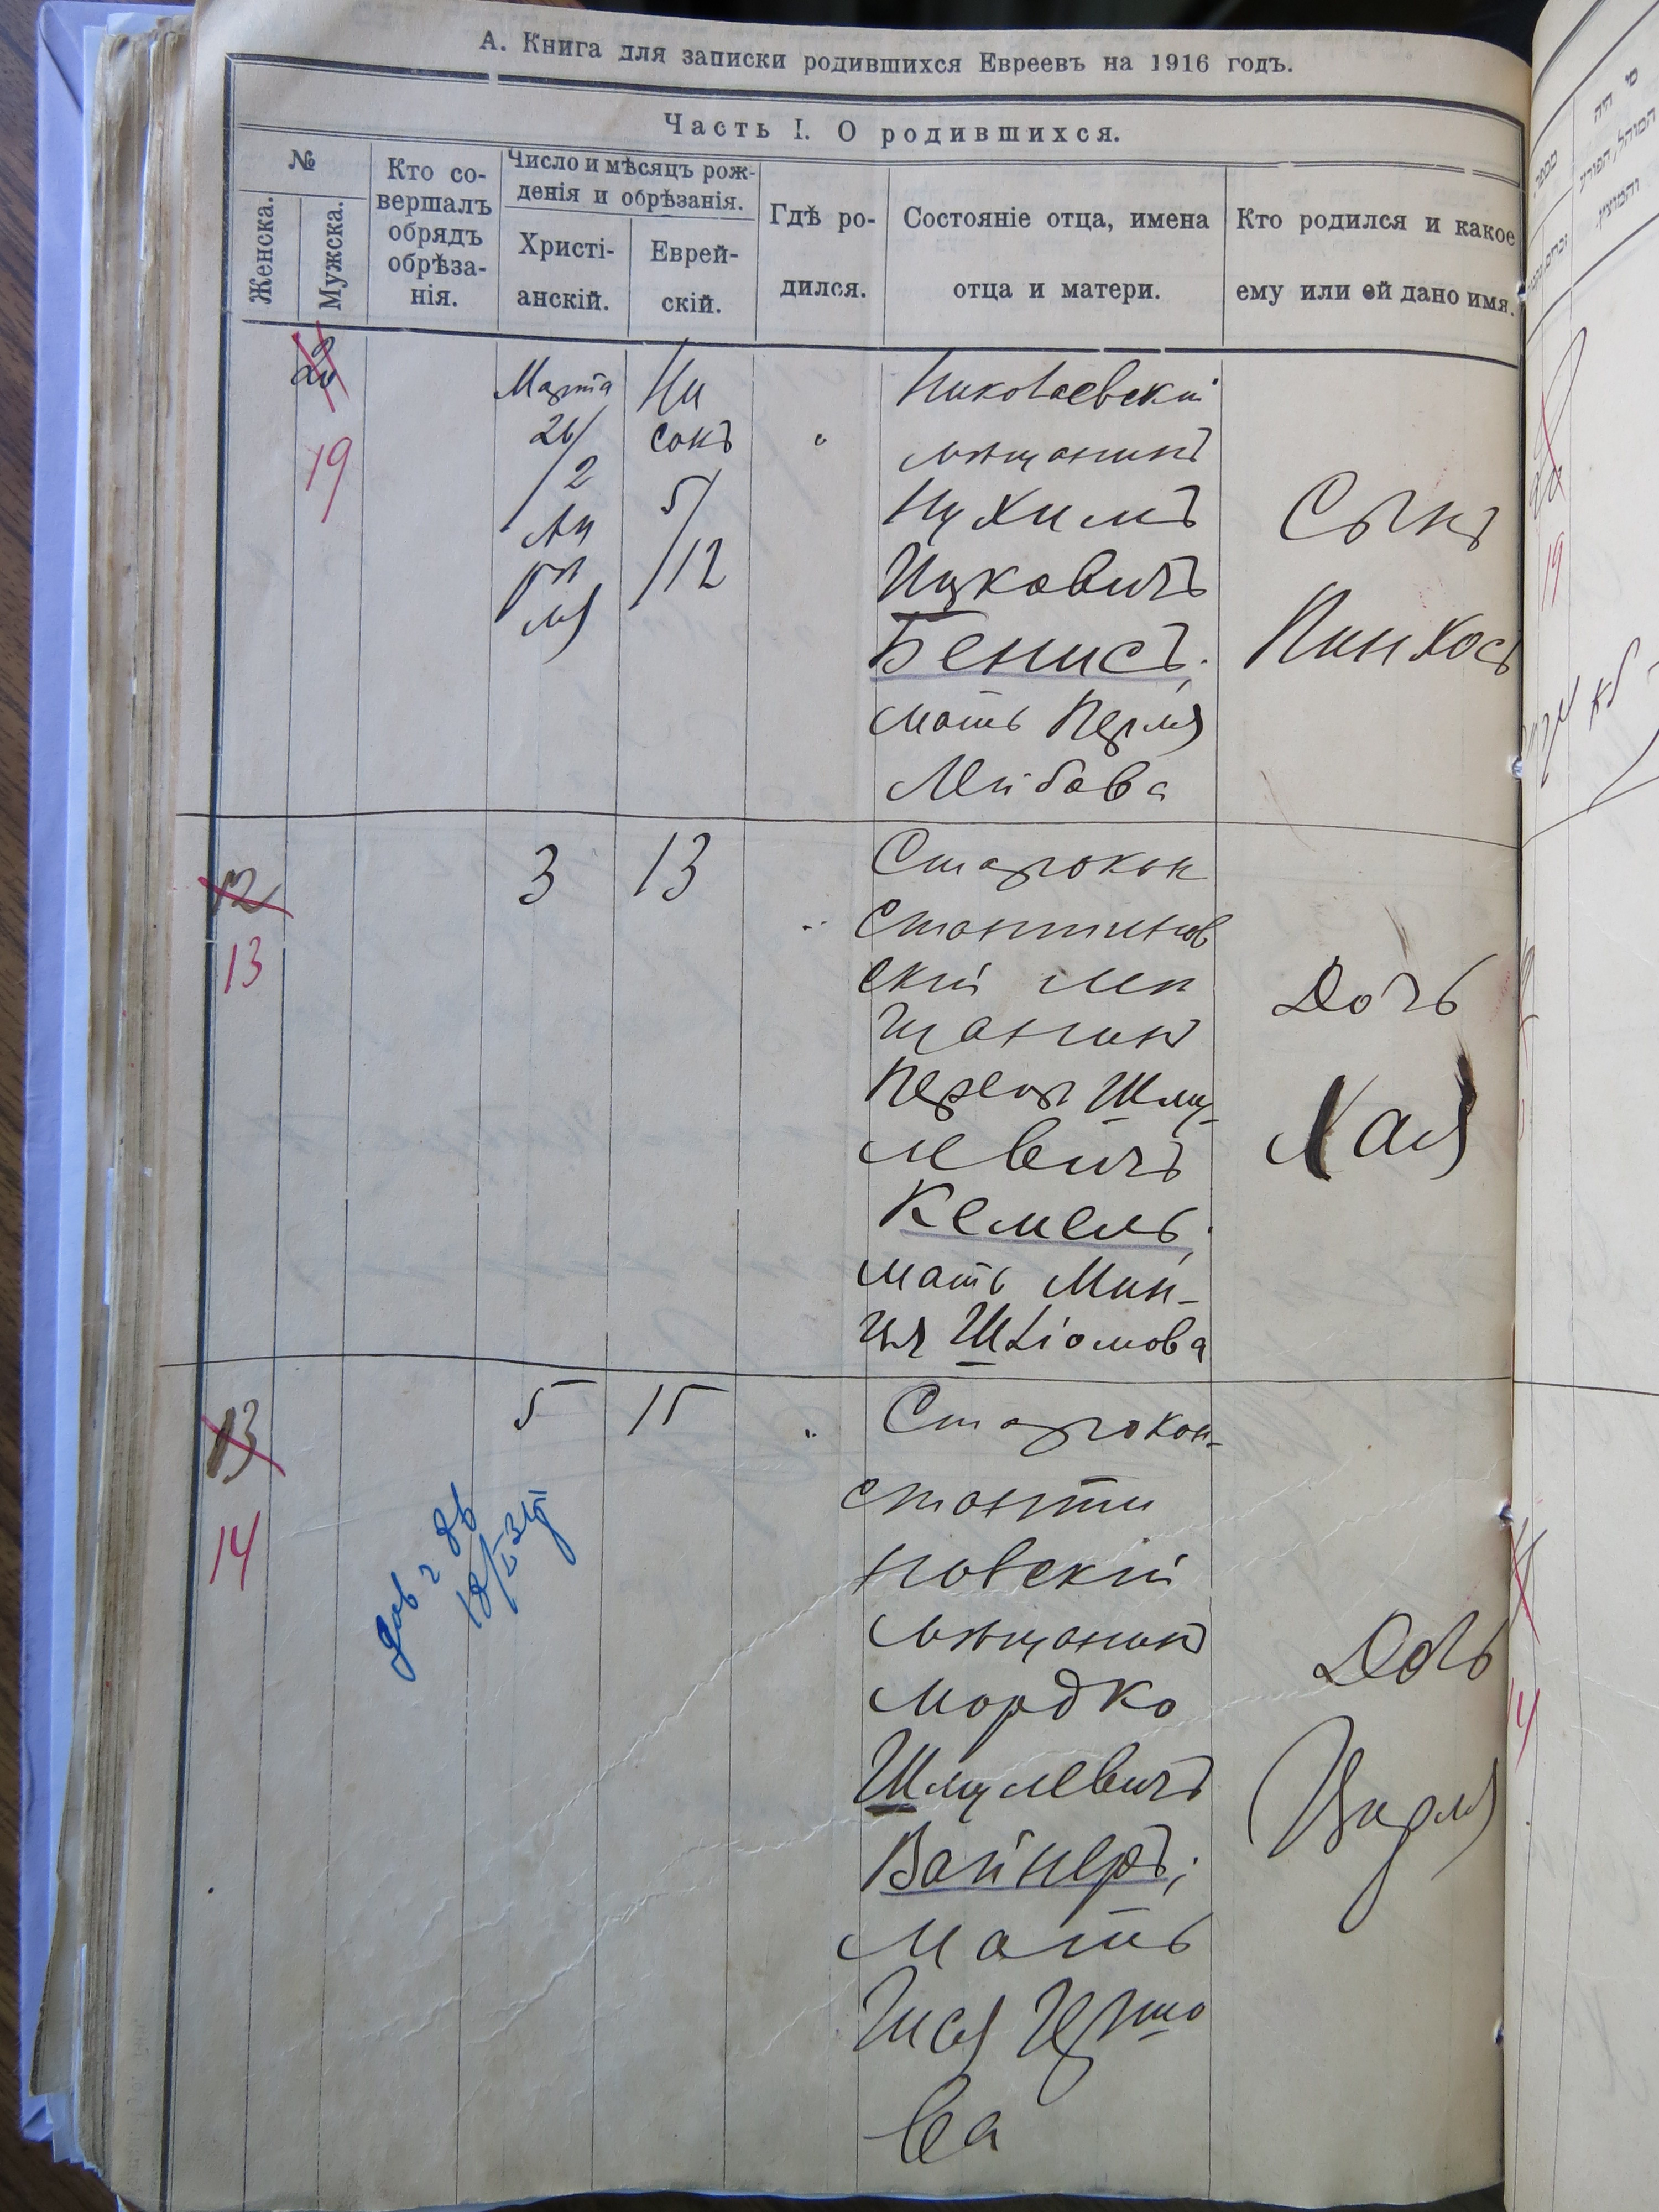 А. Книга для записки родившихся Евреевъ на 1916 годъ.
Часть I. О родившихся.
№
Женска.
Мужска.
Кто со-
вершалъ
обрядъ
обрѣза-
нія.
Число и мѣсяцъ рож-
денія и обрѣзанія.
Христі-
анскій.
Еврей-
скій.
Гдѣ ро-
дился.
Состояніе отца, имена
отца и матери.
Кто родился и какое
ему или ей дано имя.
19
Марта
26/
/2
Ап
рѣ
ля
Ни
сонъ
5/
/12
"
Николаевскій
мѣщанинъ
Нухимъ
Ицковичъ
Бенисъ;
мать Перля
Лейбова
Сынъ
Пинхосъ
12
13
3
13
"
Старокон
стантинов
скій мѣ
щанинъ
Шму-
левичъ
Кемель;
мать Мин-
ця Шліомова
Дочь
Хая
13
14
5
15
"
Старокон-
станти
новскій
мѣщанинъ
Мордко
Шмулевичъ
Вайнеръ;
мать
Гершо
ва
Дочь
Цирля